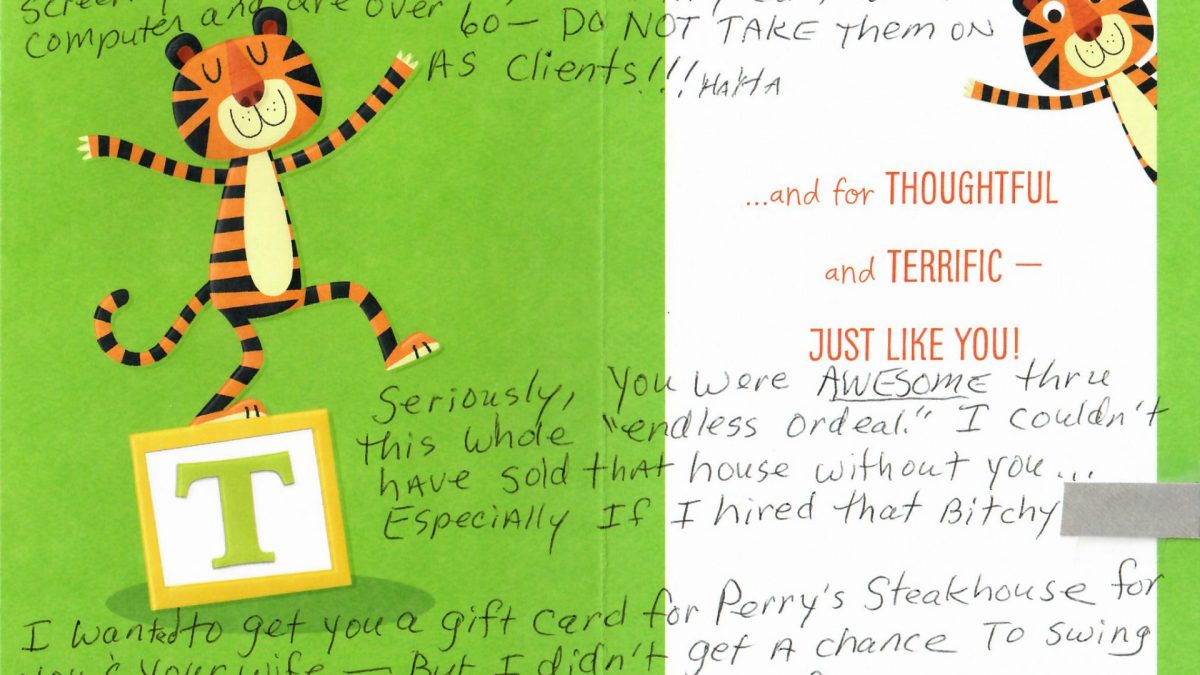 computer and are over 60 — DO NOT TAKE them ON
AS clients!!! HAHA
...and for THOUGHTFUL
and TERRIFIC —
JUST LIKE YOU!
Seriously, you were AWESOME thru
this whole "endless ordeal." I couldn't
have sold that house without you...
Especially If I hired that Bitchy
T
I wanted to get you a gift card for Perry's Steakhouse for
you & your wife — But I didn't get A chance To swing